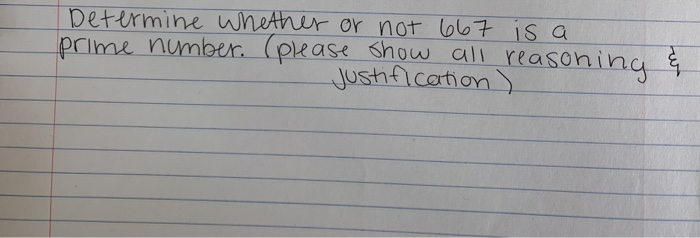 Determine whether or not 667 is a
prime number. (please show all reasoning &
justification)